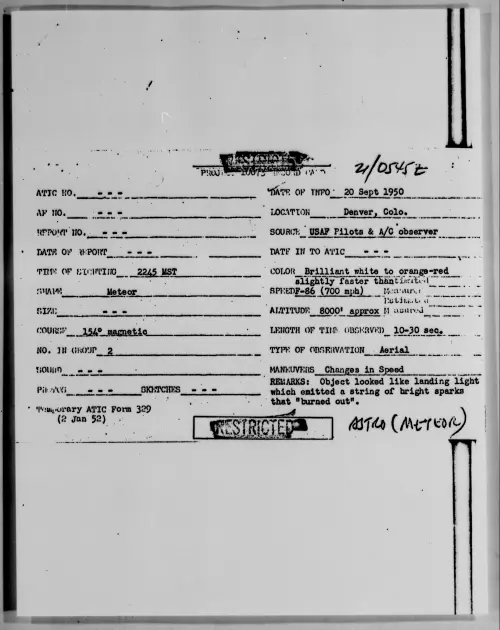 RESTRICTED
21/0545Z
ATIC NO. - - -
DATE OF INFO 20 Sept 1950
AF NO. - - -
LOCATION Denver, Colo.
REPORT NO. - - -
SOURCE USAF Pilots & A/C observer
DATE OF REPORT - - -
DATE IN TO ATIC - - -
TIME OF SIGHTING 2245 MST
COLOR Brilliant white to orange-red
SHAPE Meteor
slightly faster than
SPEED F-86 (700 mph)
Estimated
SIZE - - -
ALTITUDE 8000' approx
COURSE 154° magnetic
LENGTH OF TIME OBSERVED 10-30 sec.
NO. IN GROUP 2
TYPE OF OBSERVATION Aerial
SOUND - - -
MANEUVERS Changes in Speed
PHOTOS - - - SKETCHES - - -
REMARKS: Object looked like landing light
which emitted a string of bright sparks
that "burned out".
Temporary ATIC Form 329
(2 Jan 52)
RESTRICTED
ASTRO (METEOR)